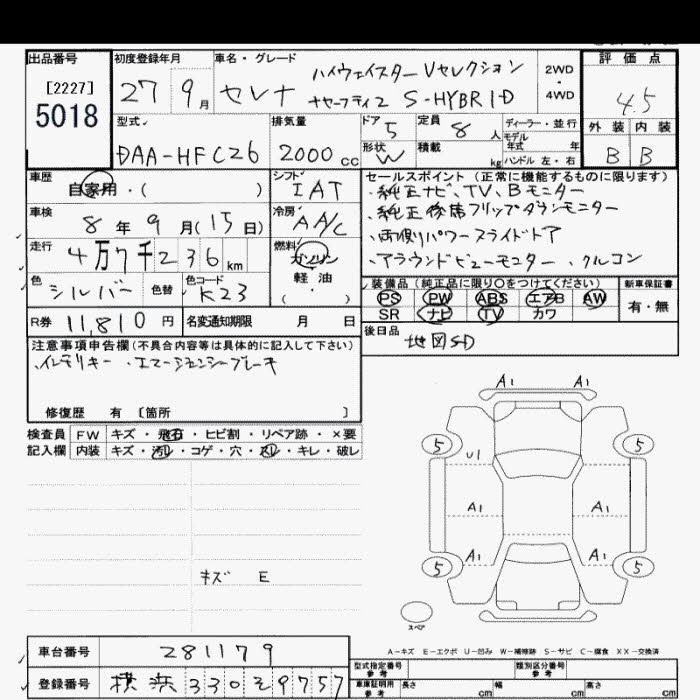 出品番号 初度登録年月 車名・グレード 評価点
[2227]
5018
27 9月
ハイウェイスター Vセレクション
セレナ +セーフティ2 S-HYBRID
2WD
・
4WD
4.5
外装 内装
B B
型式 排気量 ドア 定員 ディーラー・並行
DAA-HFC26 2000cc 5 8人
モデル年式 年
形状 積載
W kg ハンドル 左・右
車歴 シフト セールスポイント(正常に機能するものに限ります)
自家用・( ) IAT
・純正ナビ、TV、Bモニター
車検 冷房
8年9月(15日) AAC
・純正後席フリップダウンモニター
走行 燃料
4万7千236km ガソリン
軽油
( ・ )
・両側パワースライドドア
・アラウンドビューモニター、クルコン
色 色替 色コード
シルバー K23
装備品(純正品に限り○をつけてください) 新車保証書
PS PW ABS エアB AW
SR ナビ TV カワ
有・無
R券 11,810円 名変通知期限 月 日
後日品 地図SD
注意事項申告欄(不具合内容等は具体的に記入して下さい)
・インテリキー ・エマージェンシーブレーキ
修復歴 有〔箇所 〕
検査員 FW キズ・飛石・ヒビ割・リペア跡・×要
記入欄 内装 キズ・汚れ・コゲ・穴・スレ・キレ・破レ
A1 A1
5 5
U1
A1 A1
A1 A1
5 5
キズ E
スペア
A-キズ E-エクボ U-凹み W-補修跡 S-サビ C-腐食 XX-交換済
車台番号 281179
型式指定番号 参考 類別区分番号 参考
登録番号 横浜330そ9757
車庫証明用 参考 長さ cm 幅 cm 高さ cm